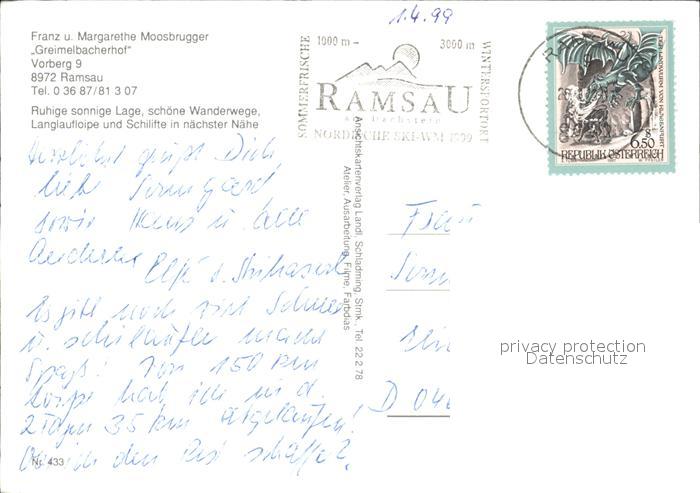 1.4.99
Franz u. Margarethe Moosbrugger
„Greimelbacherhof"
Vorberg 9
8972 Ramsau
Tel. 0 36 87/81 3 07
Ruhige sonnige Lage, schöne Wanderwege,
Langlaufloipe und Schilifte in nächster Nähe
SOMMERFRISCHE
1000 m – 3000 m
RAMSAU
am Dachstein
NORDISCHE SKI-WM 1999
WINTERSPORTORT
DER LINDWURM VON KLAGENFURT
S
6.50
REPUBLIK ÖSTERREICH
Ansichtskartenverlag Landl, Schladming, Stmk., Tel. 22 2 78
Atelier, Ausarbeitung, Filme, Farbdias
Herzlichst grüßt Dich,
liebe Irmgard
sowie Hans u. alle
Anderen
Es gibt noch viel Schnee
u. schilaufen macht
Spaß! Von 150 km
hab ich in d.
2 Tagen 35 km abgelaufen!
Ob ich den Rest schaffe?
Frau
Irm
D 04
privacy protection
Datenschutz
Nr. 433